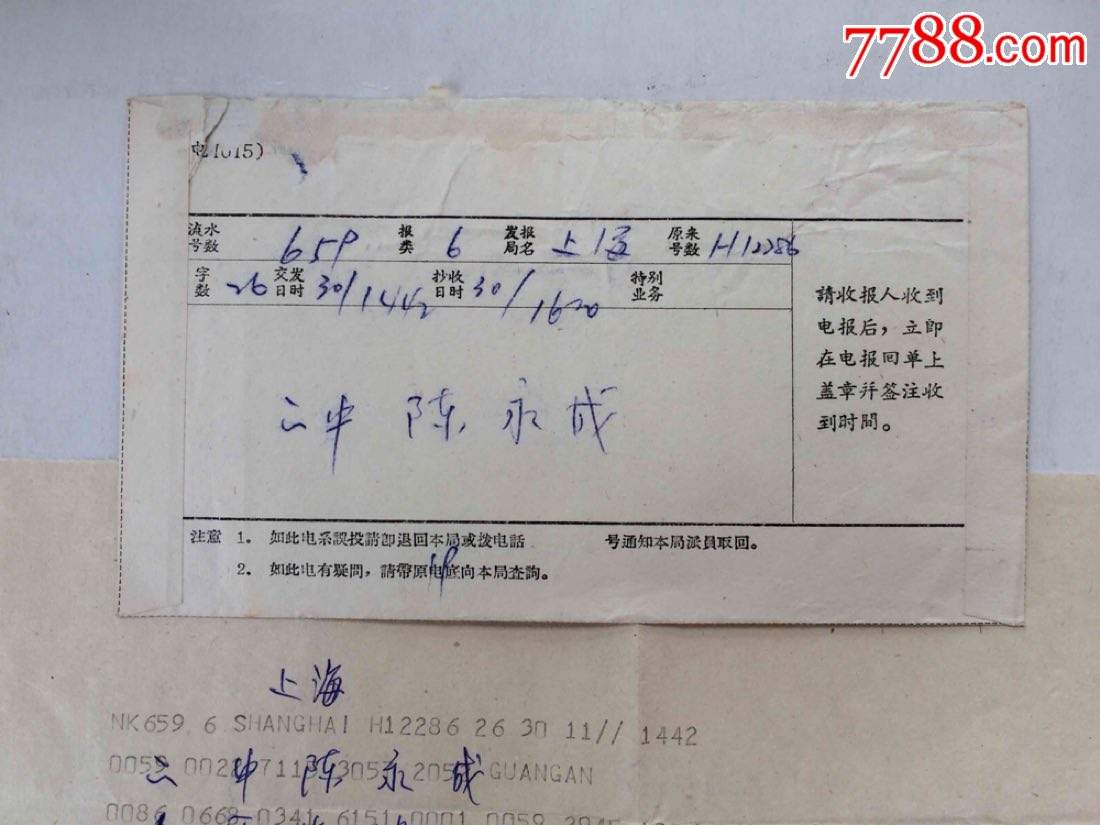 7788.com
电1015)
流水号数 659 报类 6 发报局名 上海 原来号数 H12286
字数 26 交发日时 30/1442 抄收日时 30/1620 特别业务
二中 陈永成
請收报人收到
电报后，立即
在电报回单上
盖章幷签注收
到时間。
注意 1． 如此电系誤投請卽退回本局或拨电話 号通知本局派員取回。
2． 如此电有疑問，請帶原电底向本局查詢。
上海
NK659 6 SHANGHAI H12286 26 30 11// 1442
二中 陈永成
0059 0022 7115 3057 205 GUANGAN
0086 0668 0341 6151 0001 0059